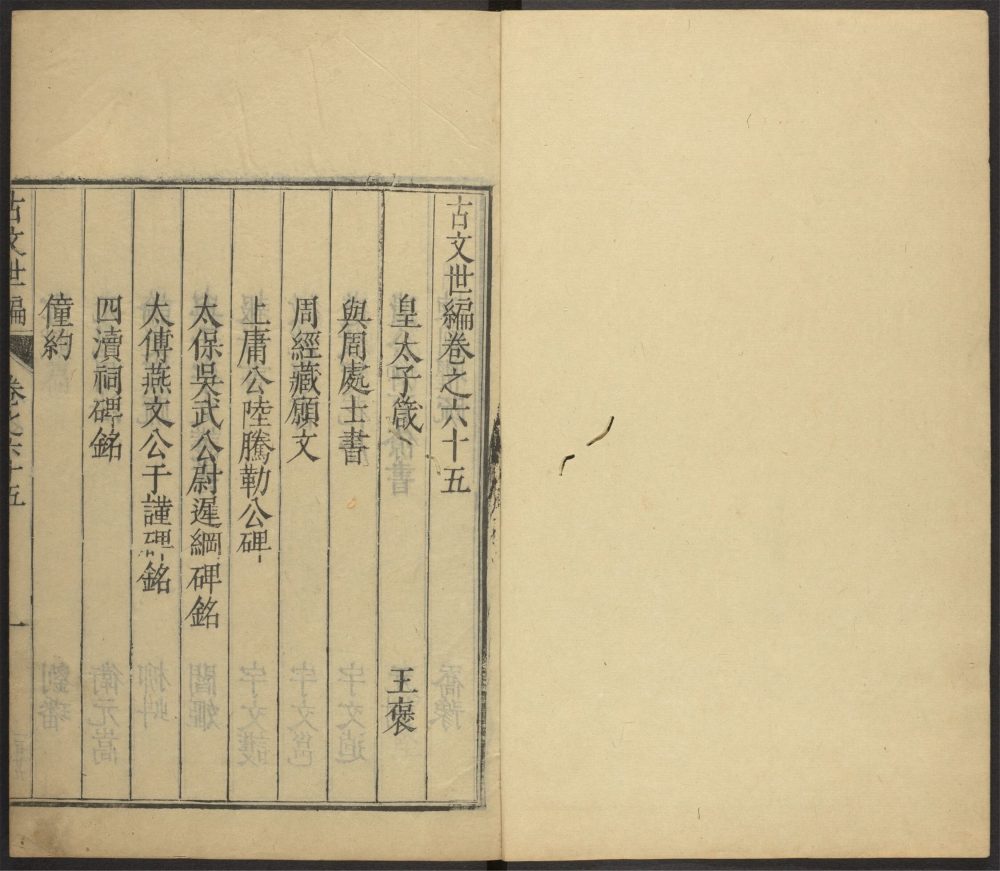 古文世編卷之六十五
皇太子箴 王褒
與周處士書
周經藏願文
上庸公陸騰勒公碑
太保吳武公尉遲綱碑銘
太傅燕文公于謹碑銘
四瀆祠碑銘
僮約
古文世編 卷之六十五 一